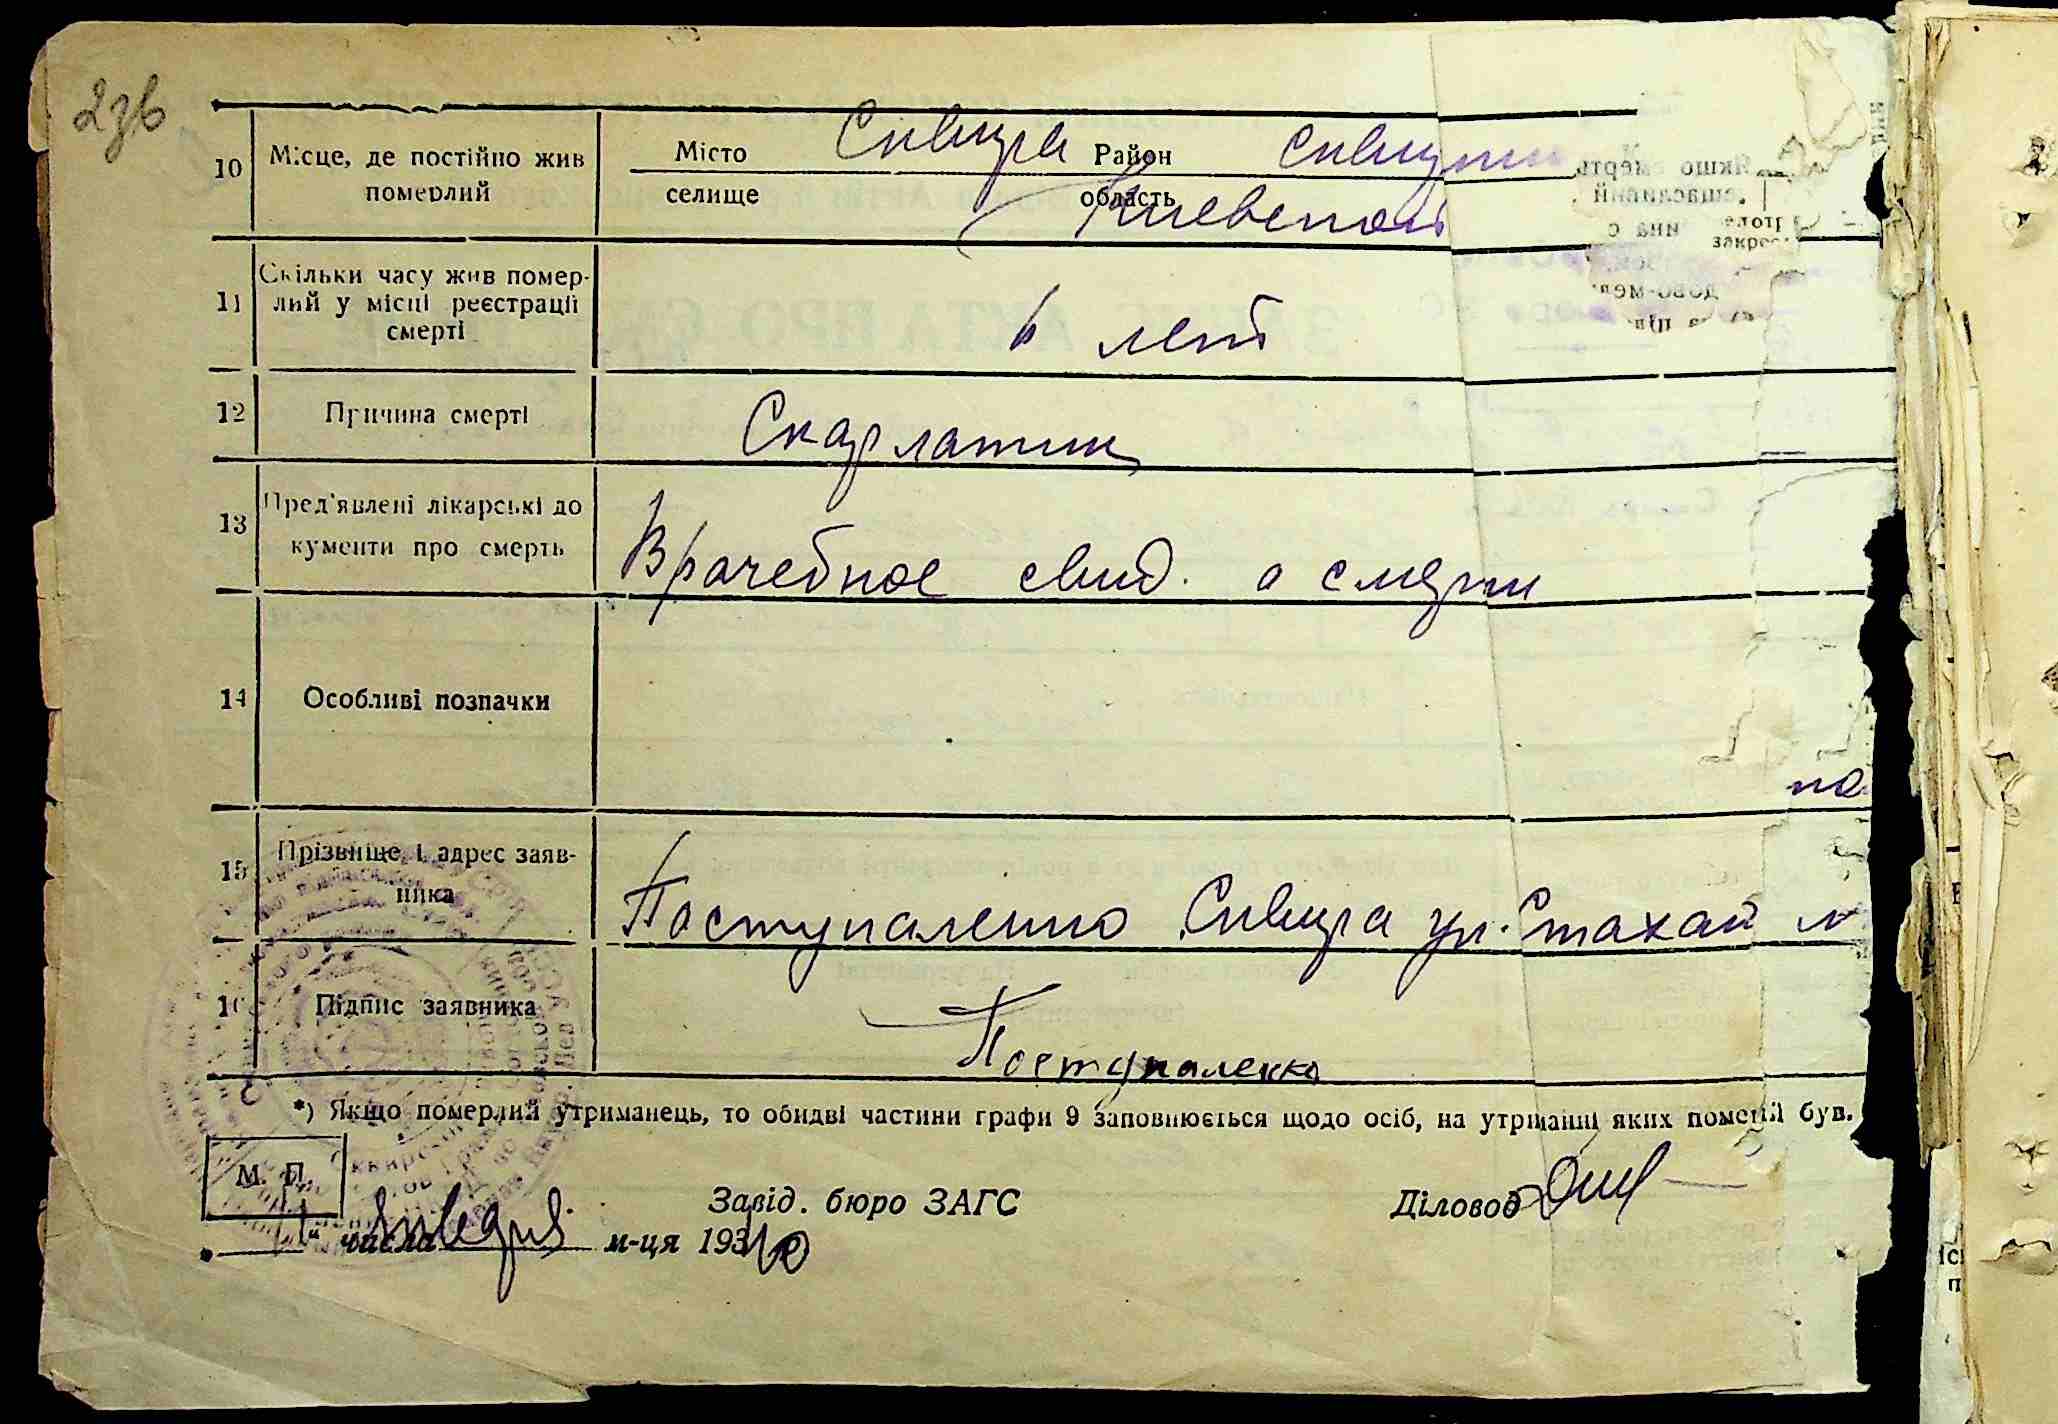 236
10 Місце, де постійно жив померлий
Місто Сквира Район Сквирский
селище область Киевской
11 Скільки часу жив помер-
лий у місці реєстрації
смерті
6 лет
12 Причина смерті Скарлатина
13 Пред'явлені лікарські до
кументи про смерть
Врачебное свид. о смерти
14 Особливі позначки
по
15 Прізвище і адрес заяв-
ника
Поступаленко Сквира ул. Стахан
16 Підпис заявника
Поступаленко
*) Якщо померлий утриманець, то обидві частини графи 9 заповнюється щодо осіб, на утриманні яких померлий був.
М. П.
Завід. бюро ЗАГС Діловод
числа м-ця 1940